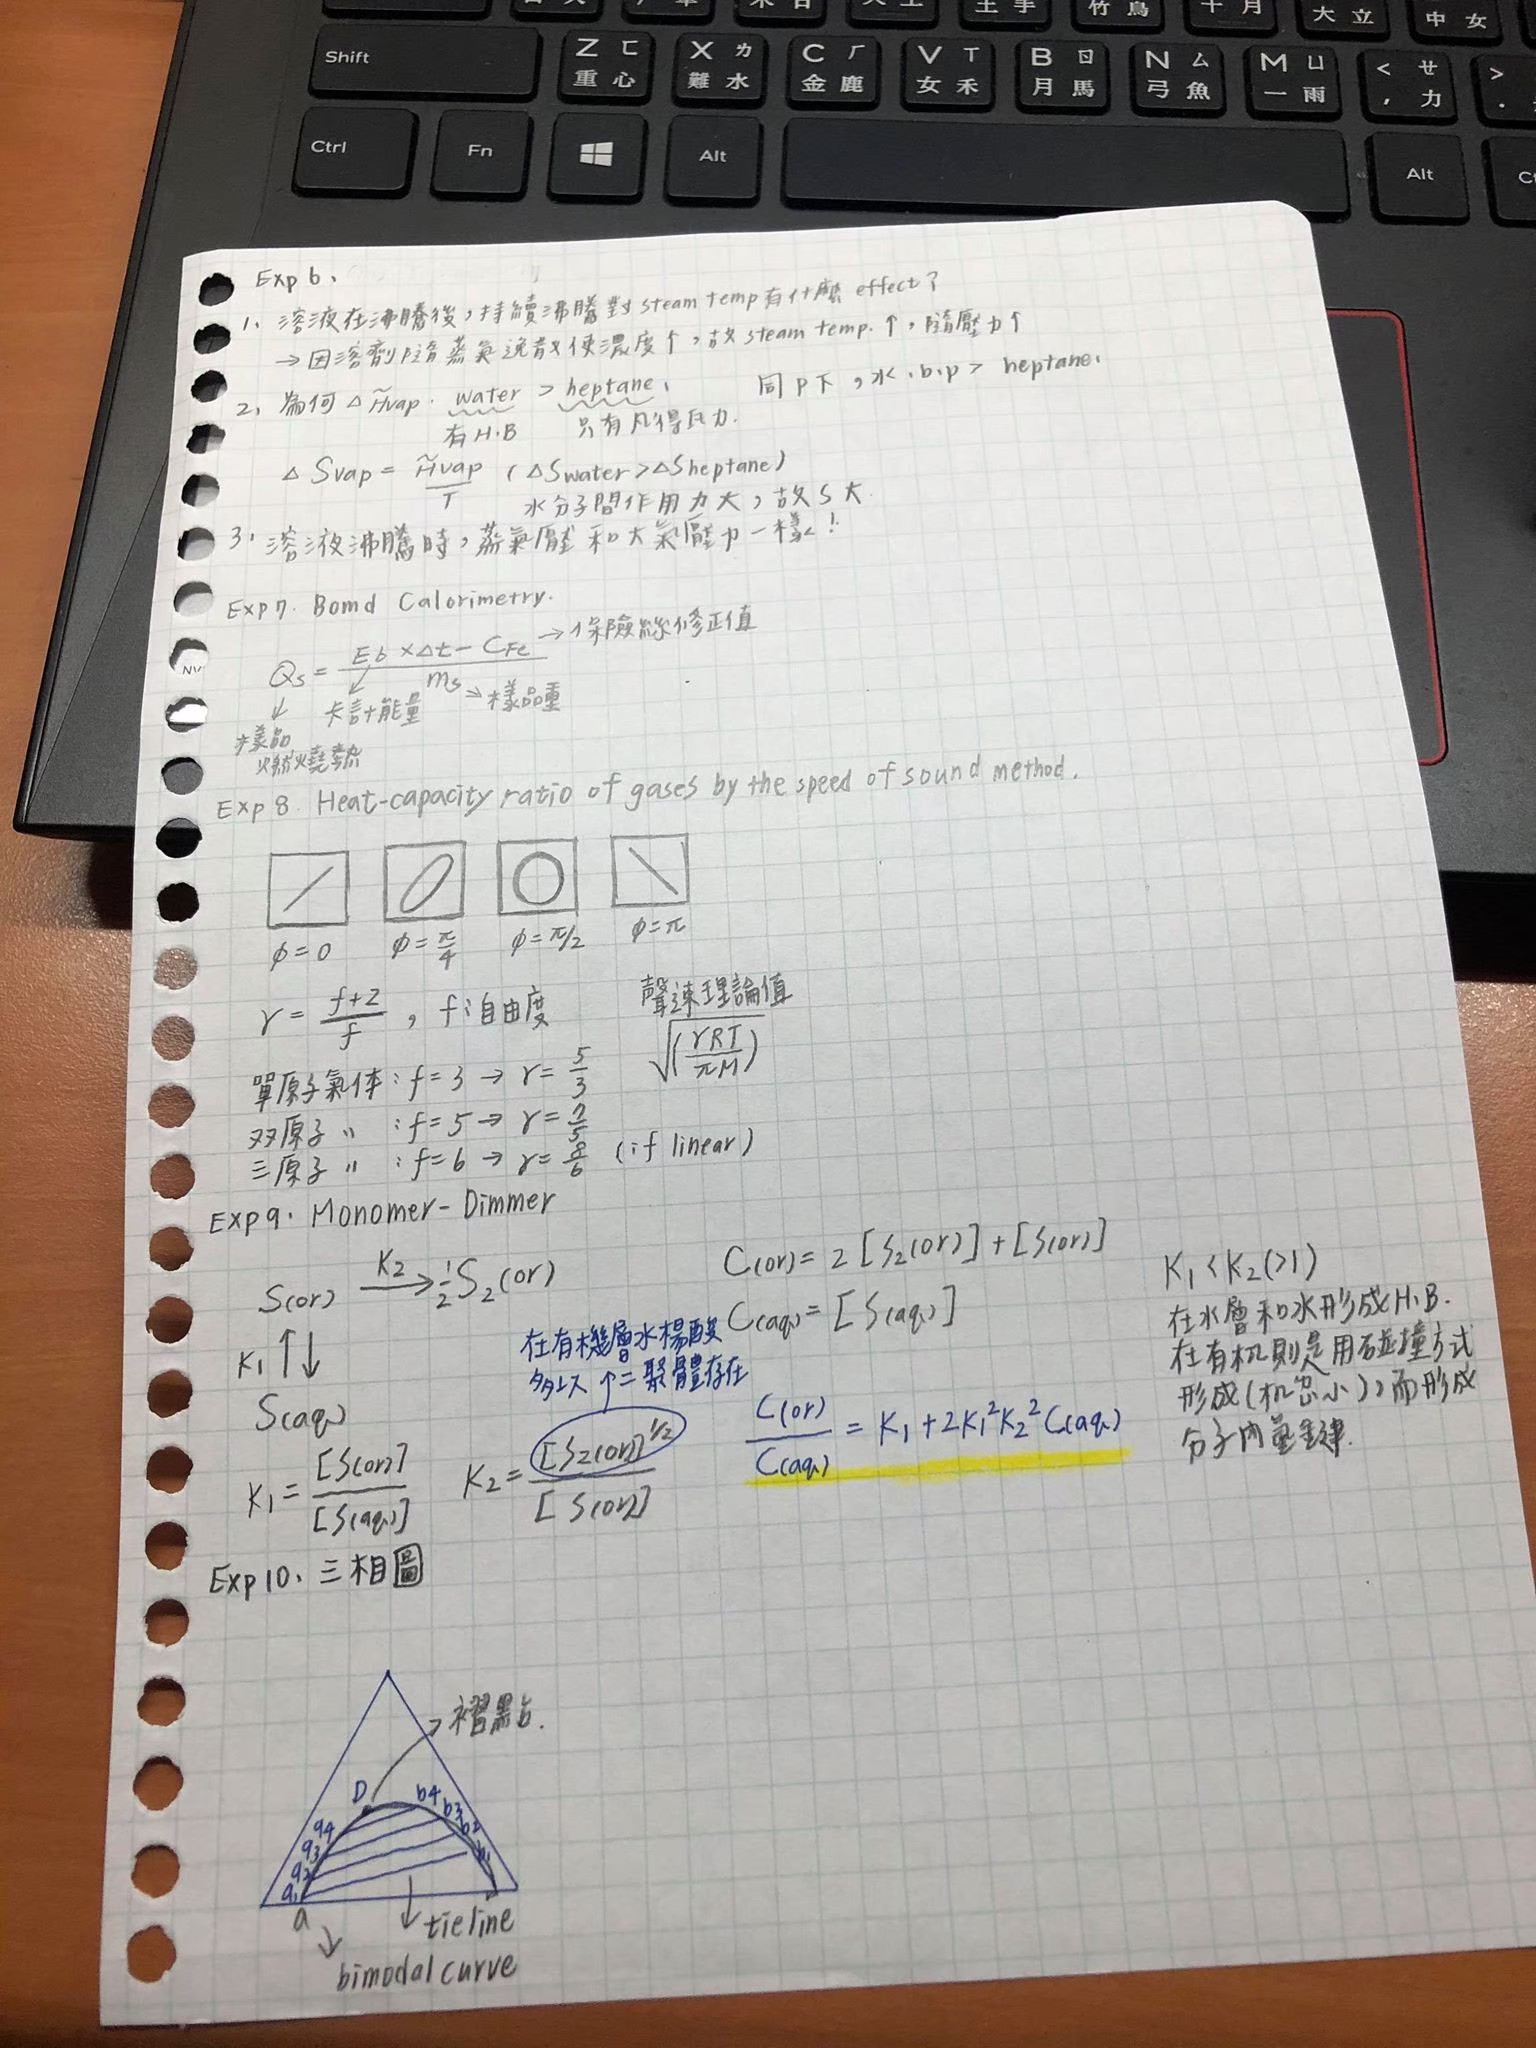 Shift
Z ㄈ 重 心
X ㄌ 難 水
C ㄏ 金 鹿
V ㄒ 女 禾
B ㄖ 月 馬
N ㄙ 弓 魚
M ㄩ 一 雨
< ㄝ , 力
> .
竹 鳥
十 月
大 立
中 女
Ctrl
Fn
Alt
Alt
Exp 6、
1、溶液在沸騰後，持續沸騰對steam temp有什麼 effect？
→因溶劑隨蒸氣逸散使濃度↑，故steam temp.↑，隨壓力↑
2、為何 △H̃vap. water > heptane、 同P下，水.b.p > heptane、
有H.B 只有凡得瓦力.
△Svap = H̃vap/T (△Swater>△Sheptane)
水分子間作用力大，故S大.
3、溶液沸騰時，蒸氣壓和大氣壓力一樣！
Exp7. Bomd Calorimetry.
Qs = (Eb×△t − CFe)/ms →保險絲修正值
卡計能量 →樣品重
樣品
燃燒熱
Exp 8. Heat-capacity ratio of gases by the speed of sound method.
φ=0 φ=π/4 φ=π/2 φ=π
γ = (f+2)/f , f:自由度 聲速理論值
√(γRT/πM)
單原子氣体:f=3 → γ=5/3
双原子 〃 :f=5 → γ=7/5
三原子 〃 :f=6 → γ=8/6 (if linear)
Exp9. Monomer-Dimmer
S(or) K2→ ½S2(or)
C(or)= 2[S2(or)]+[S(or)]
C(aq)=[S(aq)]
K1 ↑↓
S(aq)
在有機層水楊酸
多以 ↑二聚體存在
K1 = [S(or)]/[S(aq)]
K2 = [S2(or)]^1/2/[S(or)]
C(or)/C(aq) = K1+2K1²K2² C(aq)
K1<K2(>1)
在水層和水形成H.B.
在有机則是用碰撞方式
形成(机率小)，而形成
分子內氫鍵.
Exp10. 三相圖
褶點.
D b4 b3 b2 b1
a4
a3
a2
a1
a
tieline
bimodal curve